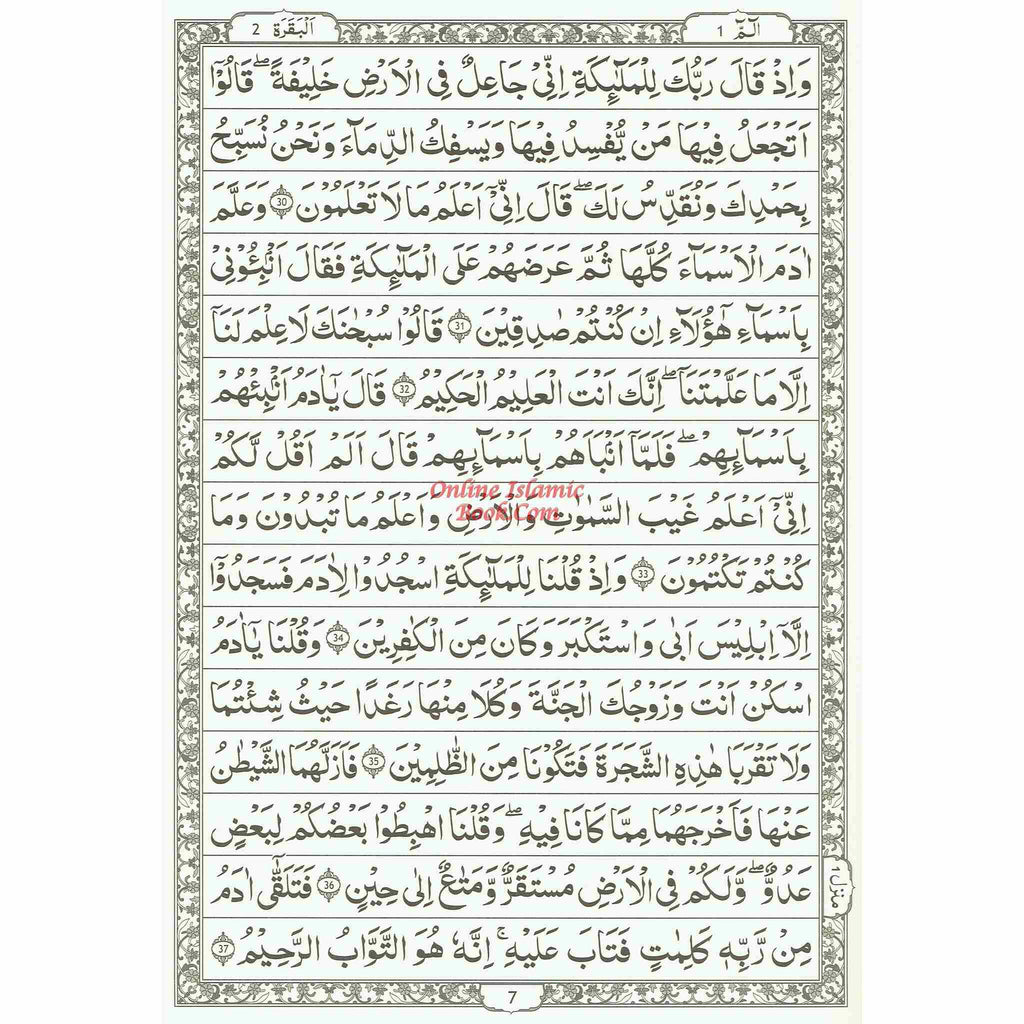 الٓمّٓ 1
اَلْبَقَرَة 2
وَاِذْ قَالَ رَبُّكَ لِلْمَلٰٓئِكَةِ اِنِّیْ جَاعِلٌ فِی الْاَرْضِ خَلِیْفَةً ؕ قَالُوْۤا
اَتَجْعَلُ فِیْهَا مَنْ یُّفْسِدُ فِیْهَا وَیَسْفِكُ الدِّمَآءَ وَنَحْنُ نُسَبِّحُ
بِحَمْدِكَ وَنُقَدِّسُ لَكَ ؕ قَالَ اِنِّیْۤ اَعْلَمُ مَا لَا تَعْلَمُوْنَ 30 وَعَلَّمَ
اٰدَمَ الْاَسْمَآءَ كُلَّهَا ثُمَّ عَرَضَهُمْ عَلَی الْمَلٰٓئِكَةِ فَقَالَ اَنْۢبِـُٔوْنِیْ
بِاَسْمَآءِ هٰۤؤُلَآءِ اِنْ كُنْتُمْ صٰدِقِیْنَ 31 قَالُوْا سُبْحٰنَكَ لَا عِلْمَ لَنَاۤ
اِلَّا مَا عَلَّمْتَنَا ؕ اِنَّكَ اَنْتَ الْعَلِیْمُ الْحَكِیْمُ 32 قَالَ یٰۤاٰدَمُ اَنْۢبِئْهُمْ
بِاَسْمَآئِهِمْ ۚ فَلَمَّاۤ اَنْۢبَاَهُمْ بِاَسْمَآئِهِمْ قَالَ اَلَمْ اَقُلْ لَّكُمْ
Online Islamic
Book.Com
اِنِّیْۤ اَعْلَمُ غَیْبَ السَّمٰوٰتِ وَالْاَرْضِ وَاَعْلَمُ مَا تُبْدُوْنَ وَمَا
كُنْتُمْ تَكْتُمُوْنَ 33 وَاِذْ قُلْنَا لِلْمَلٰٓئِكَةِ اسْجُدُوْا لِاٰدَمَ فَسَجَدُوْۤا
اِلَّاۤ اِبْلِیْسَ اَبٰی وَاسْتَكْبَرَ وَكَانَ مِنَ الْكٰفِرِیْنَ 34 وَقُلْنَا یٰۤاٰدَمُ
اسْكُنْ اَنْتَ وَزَوْجُكَ الْجَنَّةَ وَكُلَا مِنْهَا رَغَدًا حَیْثُ شِئْتُمَا
وَلَا تَقْرَبَا هٰذِهِ الشَّجَرَةَ فَتَكُوْنَا مِنَ الظّٰلِمِیْنَ 35 فَاَزَلَّهُمَا الشَّیْطٰنُ
عَنْهَا فَاَخْرَجَهُمَا مِمَّا كَانَا فِیْهِ ۪ وَقُلْنَا اهْبِطُوْا بَعْضُكُمْ لِبَعْضٍ
عَدُوٌّ ۚ وَلَكُمْ فِی الْاَرْضِ مُسْتَقَرٌّ وَّمَتَاعٌ اِلٰی حِیْنٍ 36 فَتَلَقّٰۤی اٰدَمُ
منزل 1
مِنْ رَّبِّهٖ كَلِمٰتٍ فَتَابَ عَلَیْهِ ؕ اِنَّهٗ هُوَ التَّوَّابُ الرَّحِیْمُ 37
7